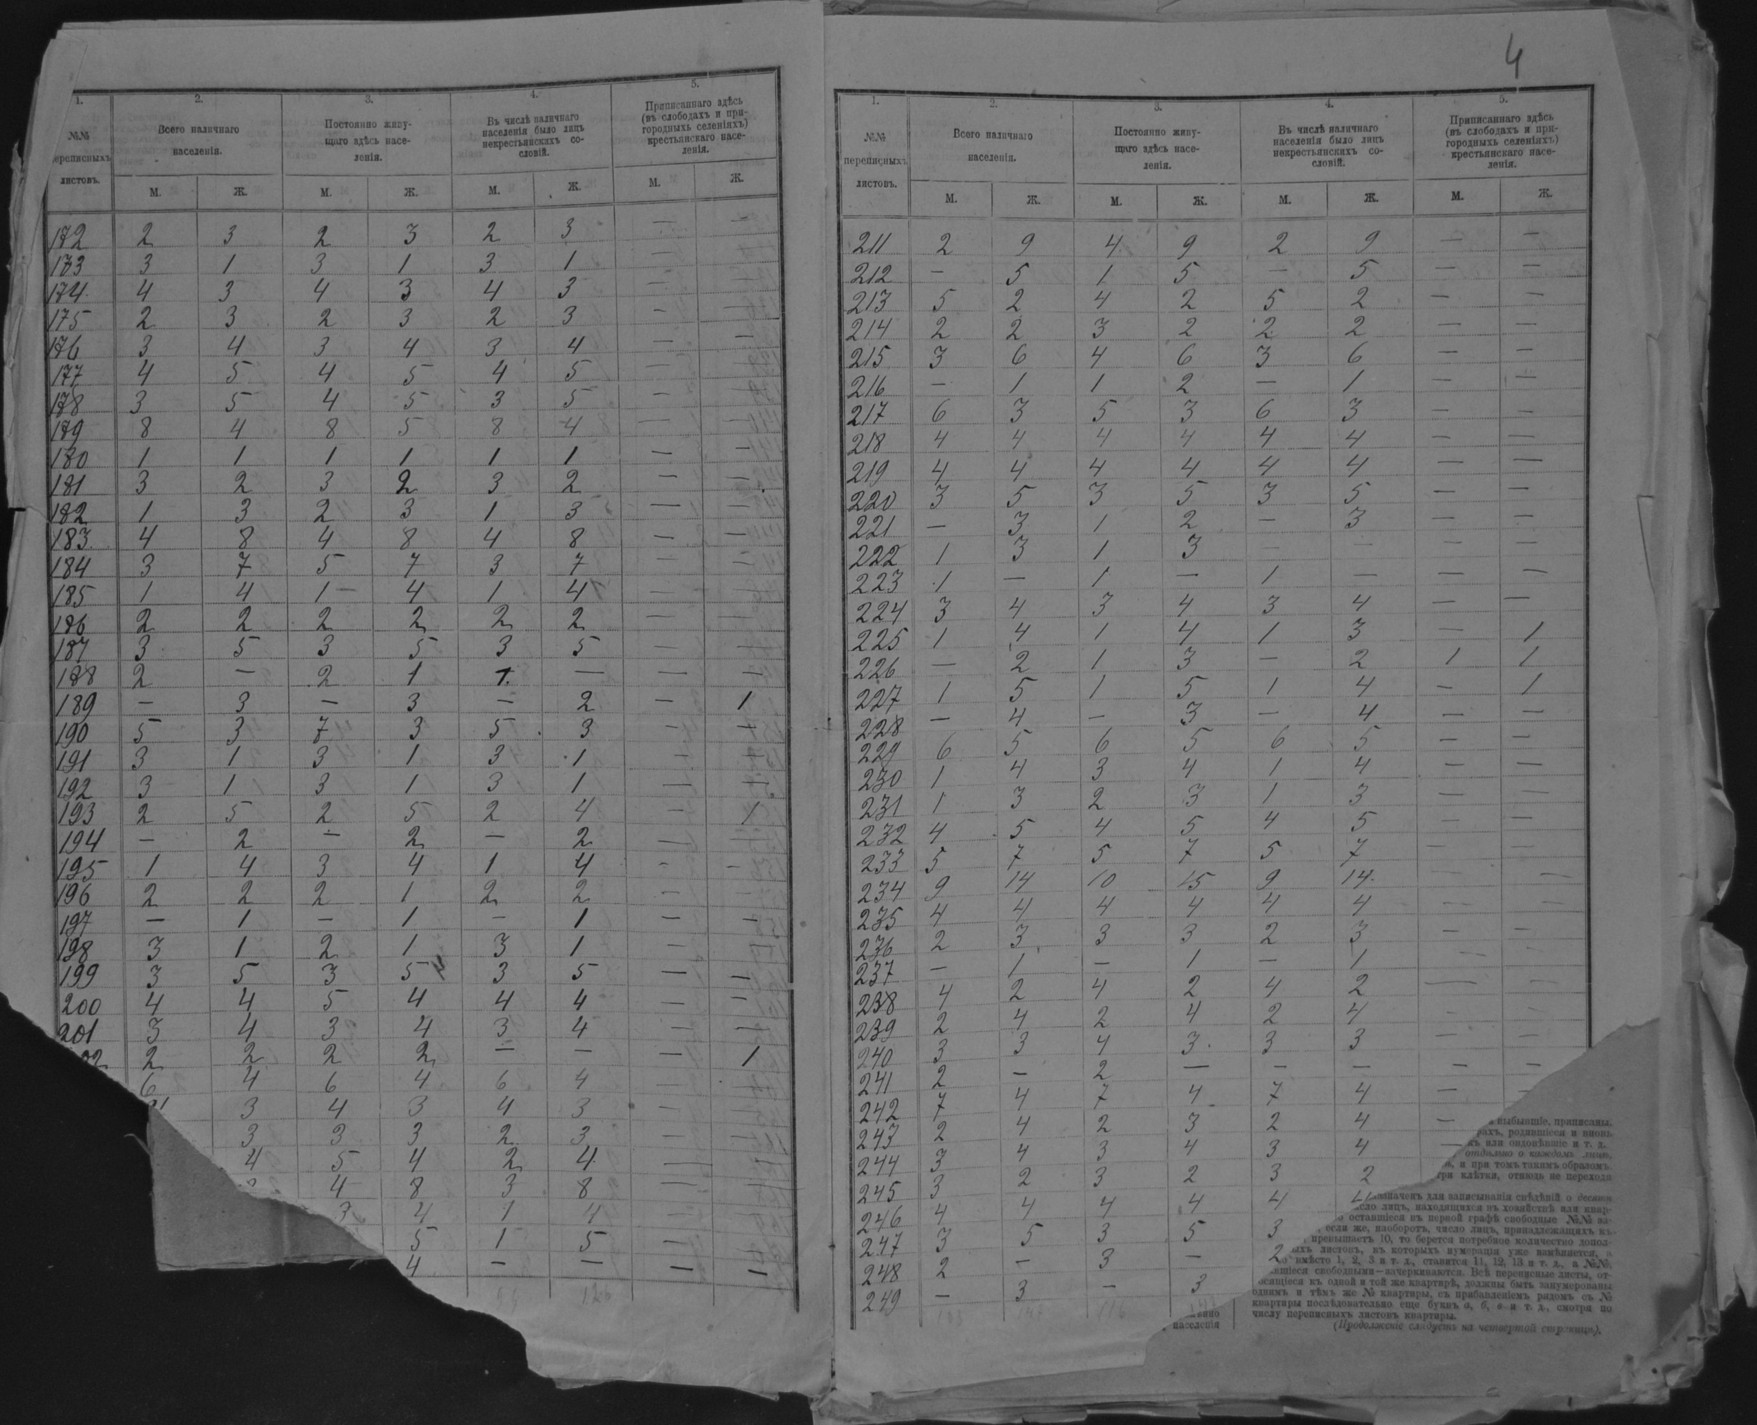 1. 2. 3. 4. 5.
№№ переписныхъ листовъ. Всего наличнаго населенія. Постоянно живущаго здѣсь населенія. Въ числѣ наличнаго населенія было лицъ некрестьянскихъ сословій. Приписаннаго здѣсь (въ слободахъ и пригородныхъ селеніяхъ) крестьянскаго населенія.
М. Ж. М. Ж. М. Ж. М. Ж.
172 2 3 2 3 2 3 — —
173 3 1 3 1 3 1 — —
174 4 3 4 3 4 3 — —
175 2 3 2 3 2 3 — —
176 3 4 3 4 3 4 — —
177 4 5 4 5 4 5 — —
178 3 5 4 5 3 5 — —
179 8 4 8 5 8 4 — —
180 1 1 1 1 1 1 — —
181 3 2 3 2 3 2 — —
182 1 3 2 3 1 3 — —
183 4 8 4 8 4 8 — —
184 3 7 5 7 3 7 — —
185 1 4 1 4 1 4 — —
186 2 2 2 2 2 2 — —
187 3 5 3 5 3 5 — —
188 2 — 2 1 1 — — —
189 — 3 — 3 — 2 — 1
190 5 3 7 3 5 3 — —
191 3 1 3 1 3 1 — —
192 3 1 3 1 3 1 — —
193 2 5 2 5 2 4 — 1
194 — 2 — 2 — 2 — —
195 1 4 3 4 1 4 — —
196 2 2 2 1 2 2 — —
197 — 1 — 1 — 1 — —
198 3 1 2 1 3 1 — —
199 3 5 3 5 3 5 — —
200 4 4 5 4 4 4 — —
201 3 4 3 4 3 4 — —
02 2 2 2 2 — — — 1
6 4 6 4 6 4 — —
3 4 3 4 3 — —
3 3 3 2 3 — —
4 5 4 2 4 — —
4 8 3 8 — —
3 4 1 4 — —
5 1 5 — —
4 — — — —
4
1. 2. 3. 4. 5.
№№ переписныхъ листовъ. Всего наличнаго населенія. Постоянно живущаго здѣсь населенія. Въ числѣ наличнаго населенія было лицъ некрестьянскихъ сословій. Приписаннаго здѣсь (въ слободахъ и пригородныхъ селеніяхъ) крестьянскаго населенія.
М. Ж. М. Ж. М. Ж. М. Ж.
211 2 9 4 9 2 9 — —
212 — 5 1 5 — 5 — —
213 5 2 4 2 5 2 — —
214 2 2 3 2 2 2 — —
215 3 6 4 6 3 6 — —
216 — 1 1 2 — 1 — —
217 6 3 5 3 6 3 — —
218 4 4 4 4 4 4 — —
219 4 4 4 4 4 4 — —
220 3 5 3 5 3 5 — —
221 — 3 1 2 — 3 — —
222 1 3 1 3 — — — —
223 1 — 1 — 1 — — —
224 3 4 3 4 3 4 — —
225 1 4 1 4 1 3 — 1
226 — 2 1 3 — 2 1 1
227 1 5 1 5 1 4 — 1
228 — 4 — 3 — 4 — —
229 6 5 6 5 6 5 — —
230 1 4 3 4 1 4 — —
231 1 3 2 3 1 3 — —
232 4 5 4 5 4 5 — —
233 5 7 5 7 5 7 — —
234 9 14 10 15 9 14 — —
235 4 4 4 4 4 4 — —
236 2 3 3 3 2 3 — —
237 — 1 — 1 — 1
238 4 2 4 2 4 2 — —
239 2 4 2 4 2 4 — —
240 3 3 4 3 3 3 — —
241 2 — 2 — — — — —
242 7 4 7 4 7 4 —
243 2 4 2 3 2 4 —
244 3 4 3 4 3 4 —
245 3 2 3 2 3 2
246 4 4 4 4 4 4
247 3 5 3 5 3
248 2 — 3 — 2
249 — 3 — 3
выбывшіе, приписаны.
родившіеся и вновь
или овдовѣвшіе и т. д.
отдѣльно о каждомъ лицѣ,
и при томъ такимъ образомъ
клѣтки, отнюдь не переходя
для записыванія свѣдѣній о десяти
лицъ, находящихся въ хозяйствѣ или квар-
оставшіеся въ первой графѣ свободные №№ за-
если же, наоборотъ, число лицъ, принадлежащихъ къ
превышаетъ 10, то берется потребное количество допол-
листовъ, въ которыхъ нумерація уже измѣняется, а
вмѣсто 1, 2, 3 и т. д., ставится 11, 12, 13 и т. д., а №№,
свободными—зачеркиваются. Всѣ переписные листы, от-
носящіеся къ одной и той же квартирѣ, должны быть занумерованы
однимъ и тѣмъ же № квартиры, съ прибавленіемъ рядомъ съ №
квартиры послѣдовательно еще буквъ а, б, в и т. д., смотря по
числу переписныхъ листовъ квартиры.
населенія
(Продолженіе слѣдуетъ на четвертой страницѣ).